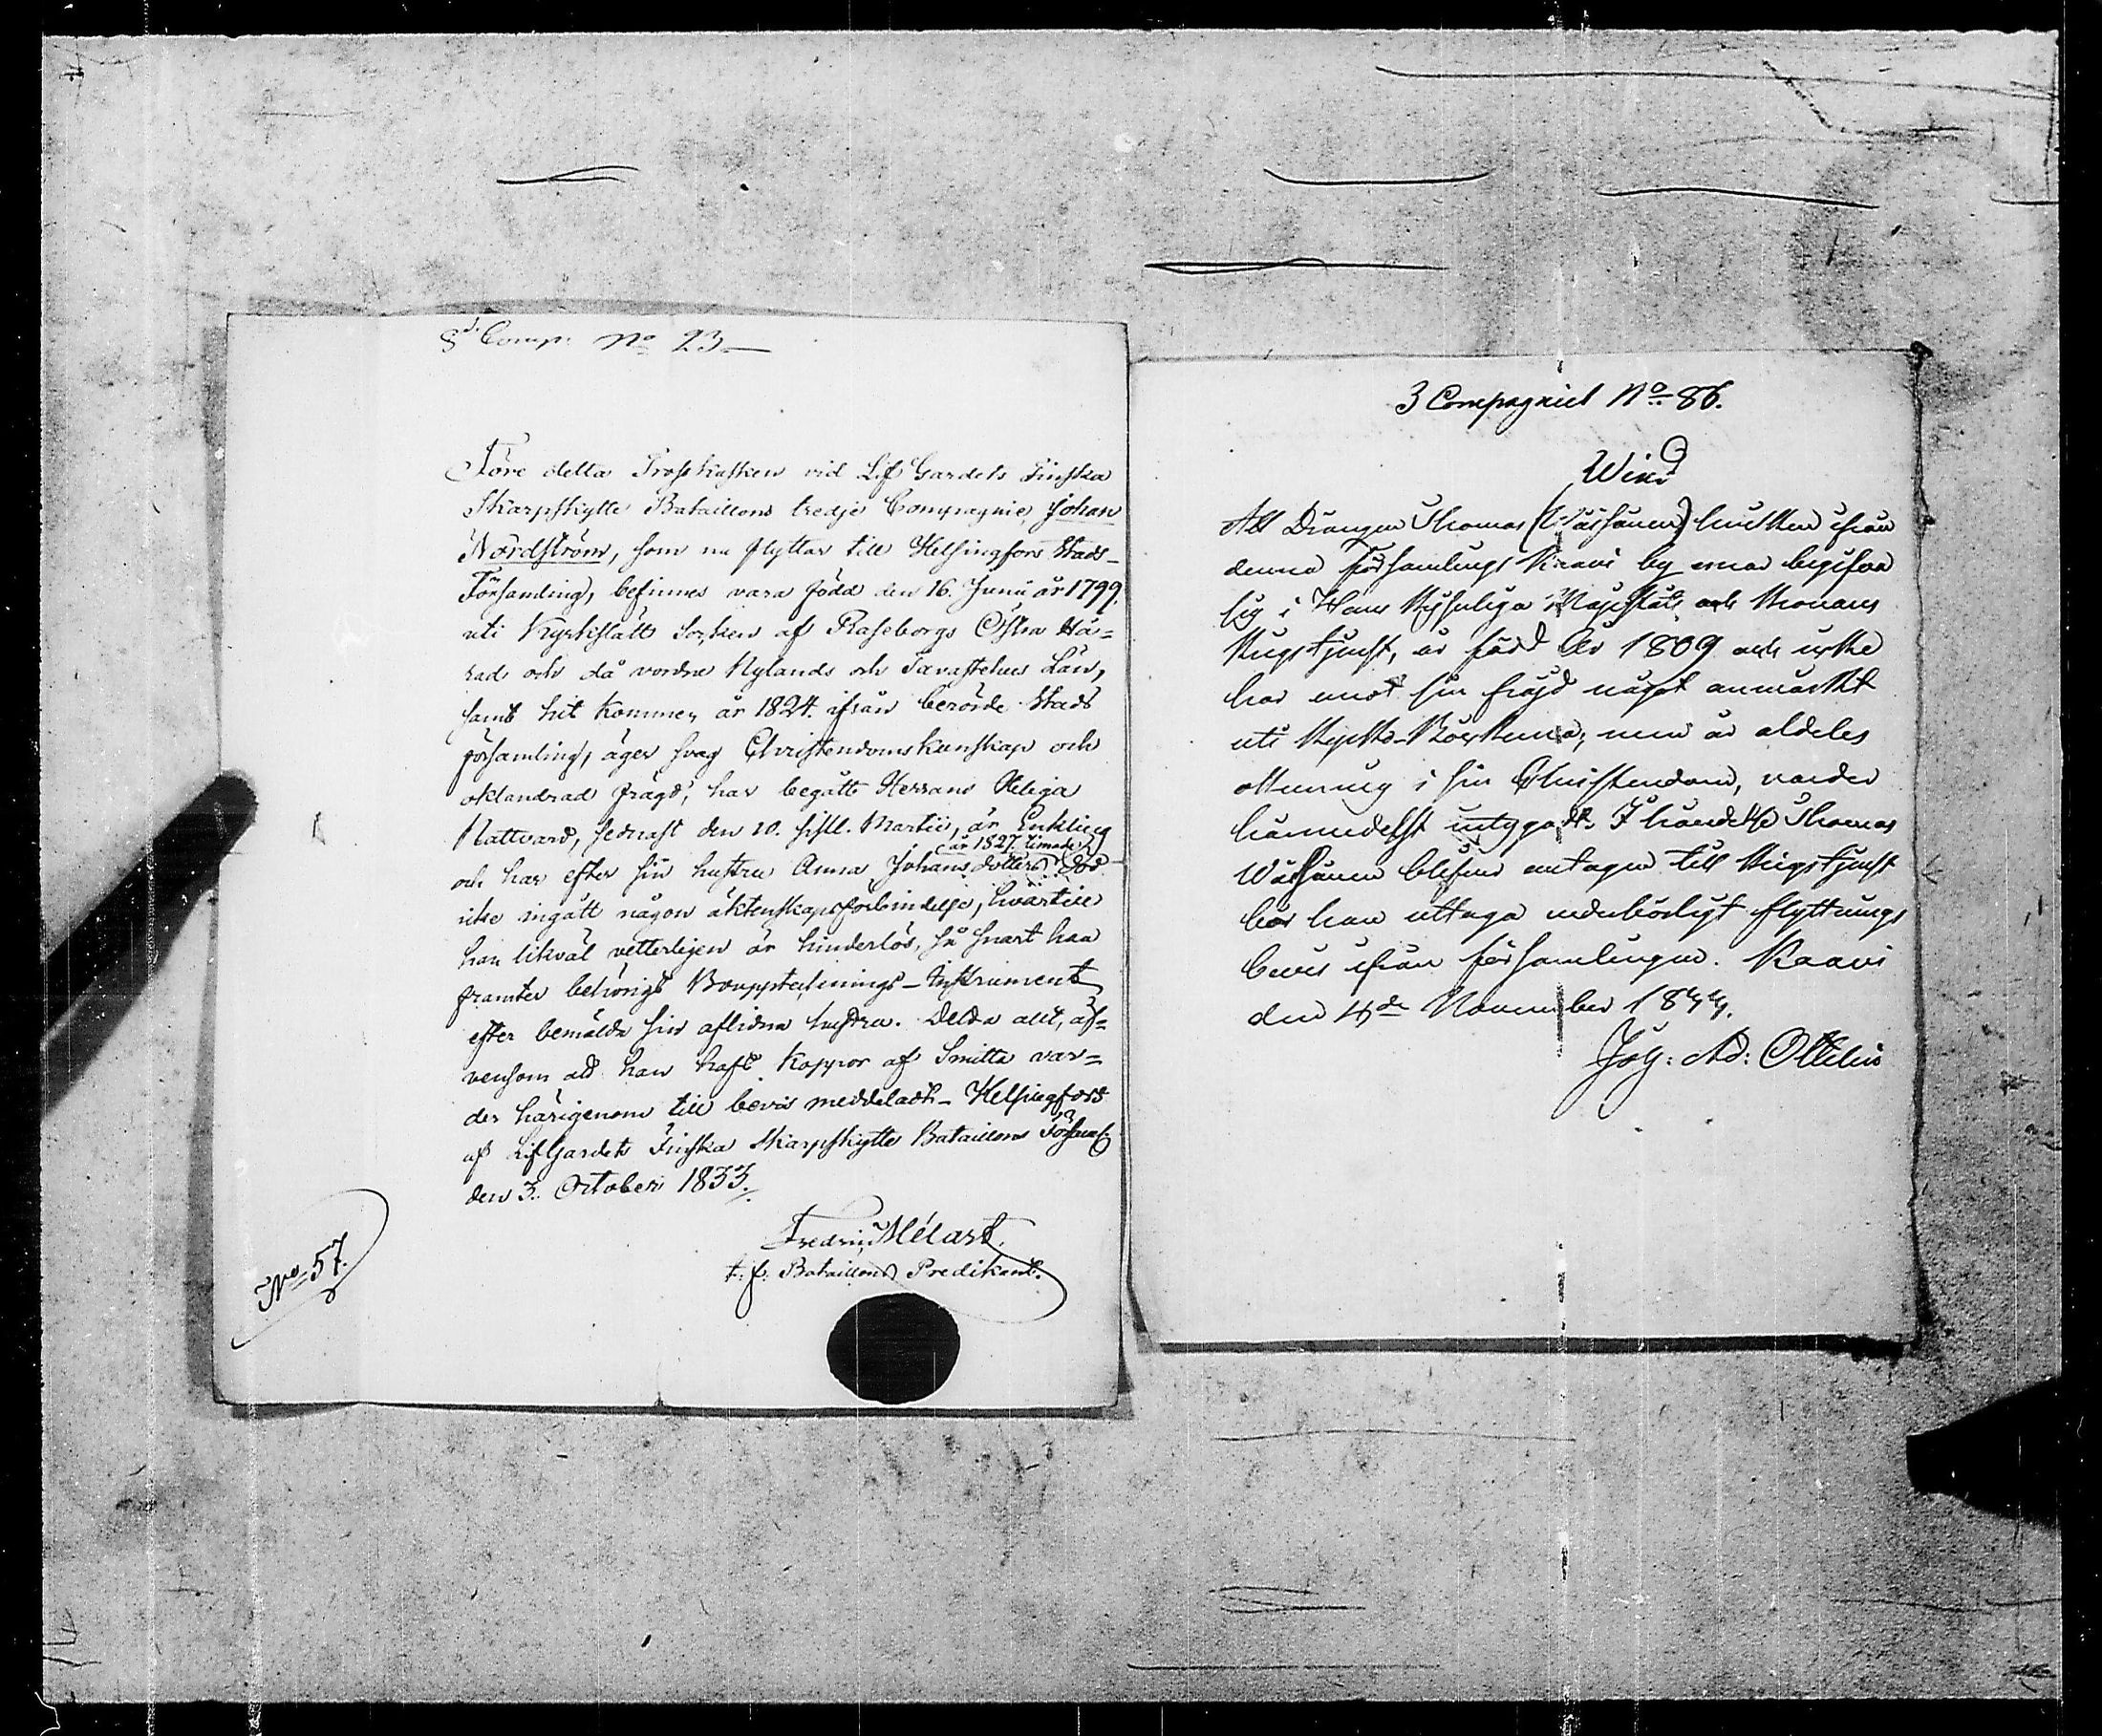 3d. Comp. No 23
Före detta Trosskusken vid Lif Gardets Finska
Skarpskytte Bataillons tredje Compagnie, Johan
Nordström, som nu flyttar till Helsingfors Stads-
Församling, befinnes vara född den 16. Junii år 1799.
uti Kyrkslätt Socken af Raseborgs Östra Hä-
rad och då vordne Nylands och Tavastehus Län,
samt hit kommen år 1824. ifrån berörde Stads
församling, äger svag Christendomskunskap och
oklandrad frägd, har begått Herrans Heliga
Nattvard, sednast den 10. sistl. Martii, är Enkling
och har efter sin hustru Anna Johans dotters (år 1827. timade) död
icke ingått någon äktenskapsförbindelse, hvartill
han likväl vetterligen är hinderlös, så snart han
framter behörigt Boupptecknings-Instrument
efter bemälde sin aflidna hustru. Detta allt, äf-
vensom att han haft koppor af Smitta var-
der härigenom till bevis meddeladt. Helsingfors
af LifGardets Finska Skarpskytte Bataillons Förs:
den 3. October 1833.
Fredric Mélart.
t. f. Bataillons Predikant.
No 57.
3 Compagniet No 86.
Wind
Att Drängen Thomas (Wäisänen) hvilken ifrån
denna församlings Kaavi by ernar begifva
sig i Hans Kejserliga Majestäts och Kronans
Krigstjenst, är född År 1809 och icke
har emot sin fräjd något anmärkt
uti Kyrko-Böckerna; men är aldeles
okunnig i sin Christendom, varder
härmedelst intygadt. I händelse Thomas
Wäisänen blifver antagen till Krigstjenst
bör han uttaga vederbörligt flyttnings
bevis ifrån församlingen. Kaavi
den 4de November 1844.
Joh: Ad: Ottelin